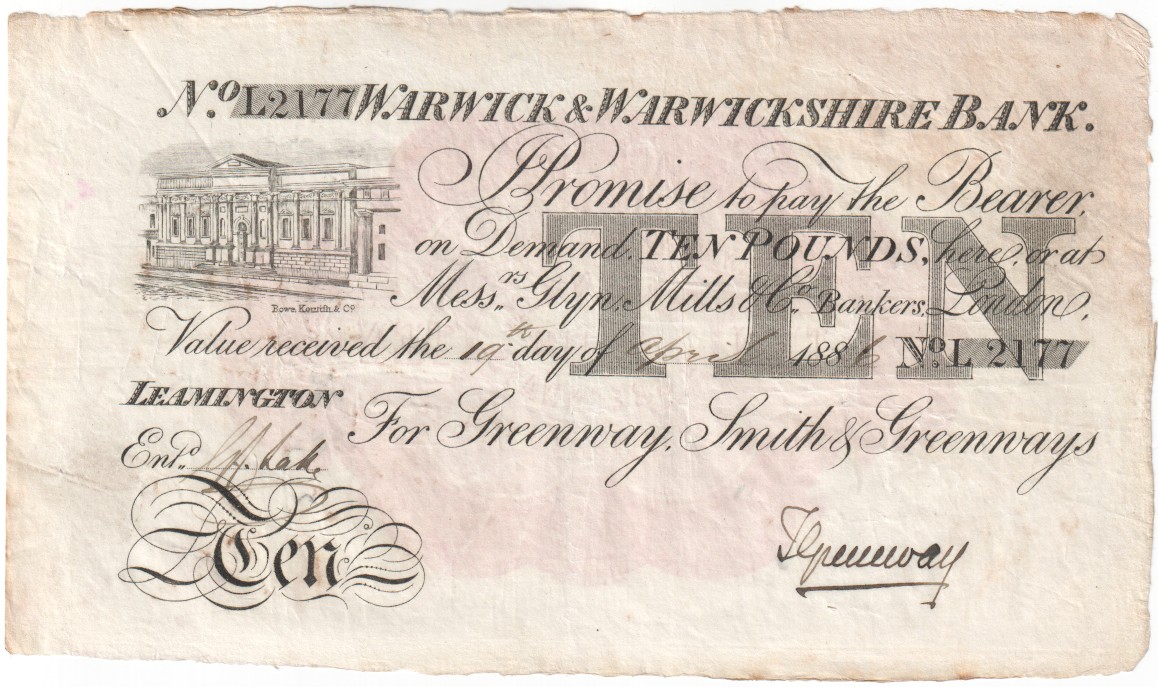 No. L2177 WARWICK & WARWICKSHIRE BANK.
I Promise to pay the Bearer,
on Demand, TEN POUNDS, here, or at
Messrs. Glyn, Mills & Co. Bankers, London,
Value received the 19th day of April 1886 No. L 2177
TEN
LEAMINGTON
For Greenway, Smith & Greenways
Entd.
Ten
Greenway